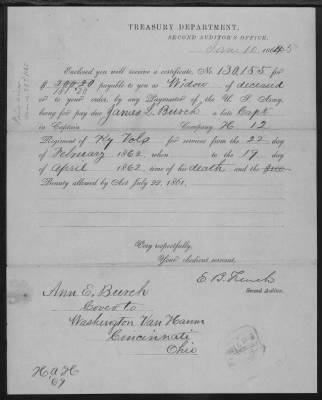 TREASURY DEPARTMENT,
SECOND AUDITOR'S OFFICE,
Jan 10 1865
Enclosed you will receive a certificate, No. 130155 for
$ payable to you as Widow of deceased
or to your order, by any Paymaster of the U. S. Army,
being for pay due James L. Burch a late Capt
in Captain Company H 12
Regiment of Ky Vols for services from the 22 day
of February 1862, when to the 19 day
of April 1862, time of his death and the $100
Bounty allowed by Act July 22, 1861.
Very respectfully,
Your obedient servant,
E B. French
Second Auditor.
Ann E. Burch
Cover to
Washington Van Hamm
Cincinnati
Ohio
H a H
69